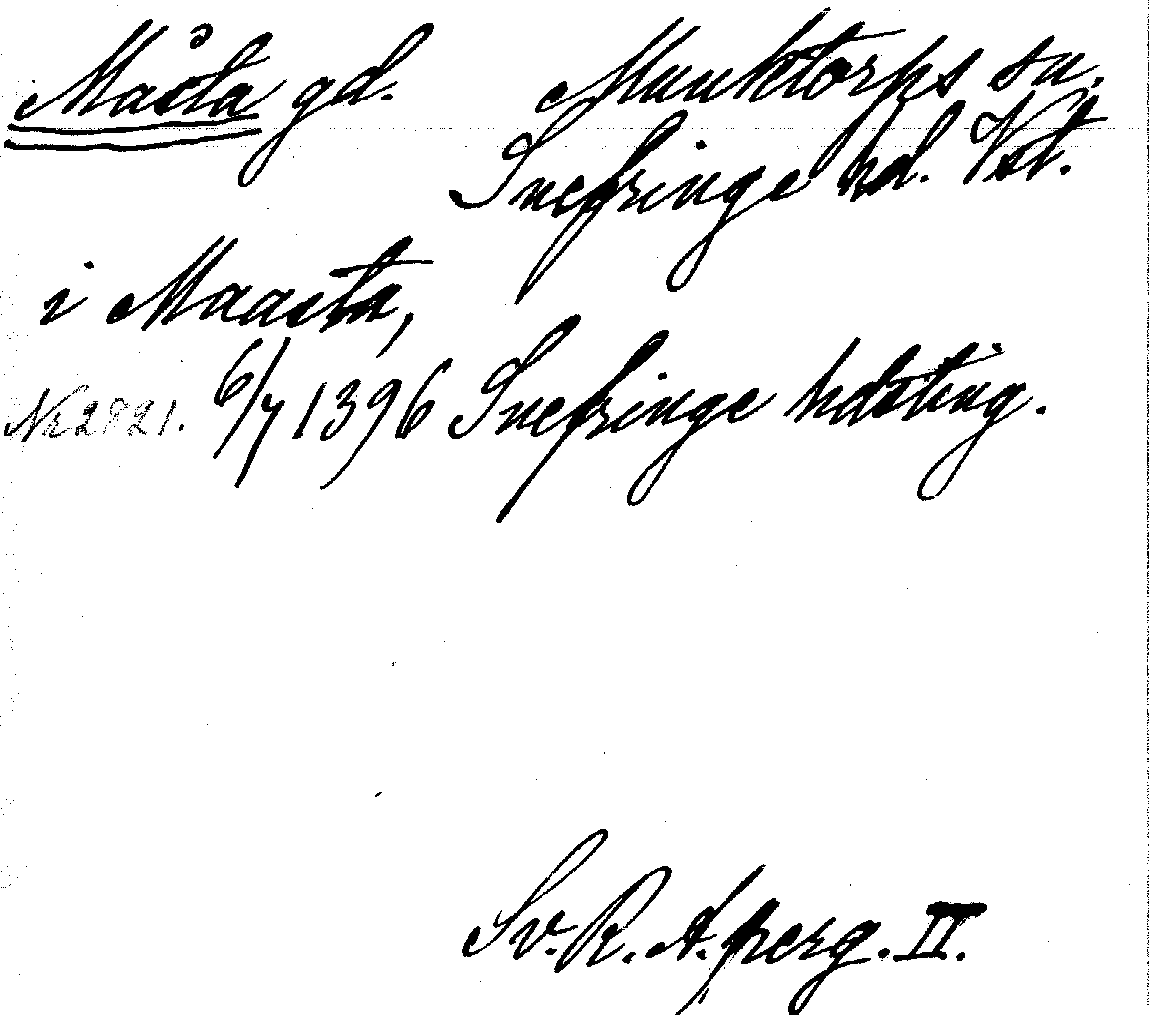 Måsta gd. Munktorps sn.
Snefringe hd. Vstl.
i Maasta,
Nr 2821. 6/7 1396 Snefringe hdsting.
Sv. R. A. perg. II.